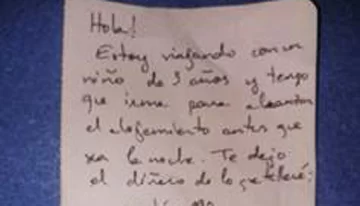 Hola!
Estoy viajando con un
niño de 3 años y tengo
que irme para alcanzar
el alojamiento antes que
sea la noche. Te dejo
el dinero de lo que llevé: